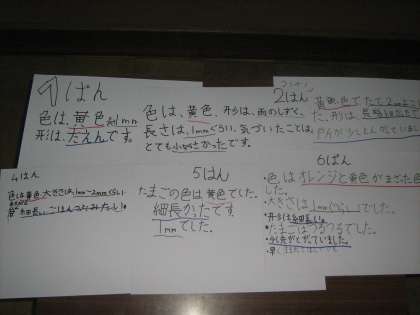 1ぱん
色は、黄色 約1mm
形は、だえんです。
色は、黄色、形は、雨のしずく、
長さは、1mmぐらい、気づいたことは、
とても小さかったです。
2はん
黄色で たて2mm
た、形は、
4はん
色は黄色、大きさは1mm〜2mmぐらい
細長い。ごはんつぶみたい。
5はん
たまごの色は黄色でした。
細長かったです。
1mmでした。
6ぱん
色はオレンジと黄色がまざった色
した。
・大きさは1mmぐらいでした。
・形は細長い。
・たまごはつるつるでした。
・少し先がとがっていました。